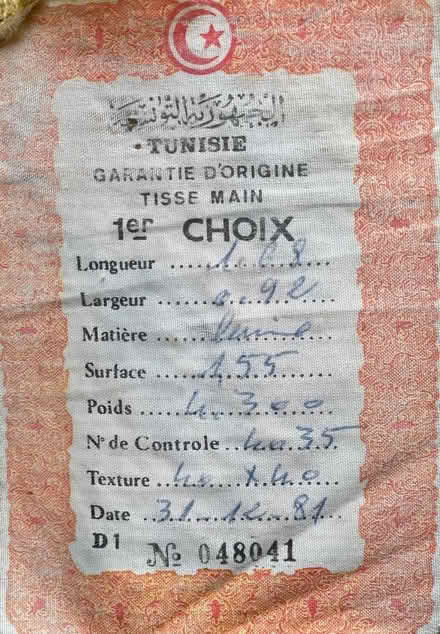 الجمهورية التونسية
TUNISIE
GARANTIE D'ORIGINE
TISSE MAIN
1er CHOIX
Longueur ....1.68....
Largeur ....0.92....
Matière ....laine....
Surface ....1,55....
Poids ....4.300....
Nº de Controle ..4035..
Texture ..40 x 40...
Date ..31..12..81..
D1
Nº 048041